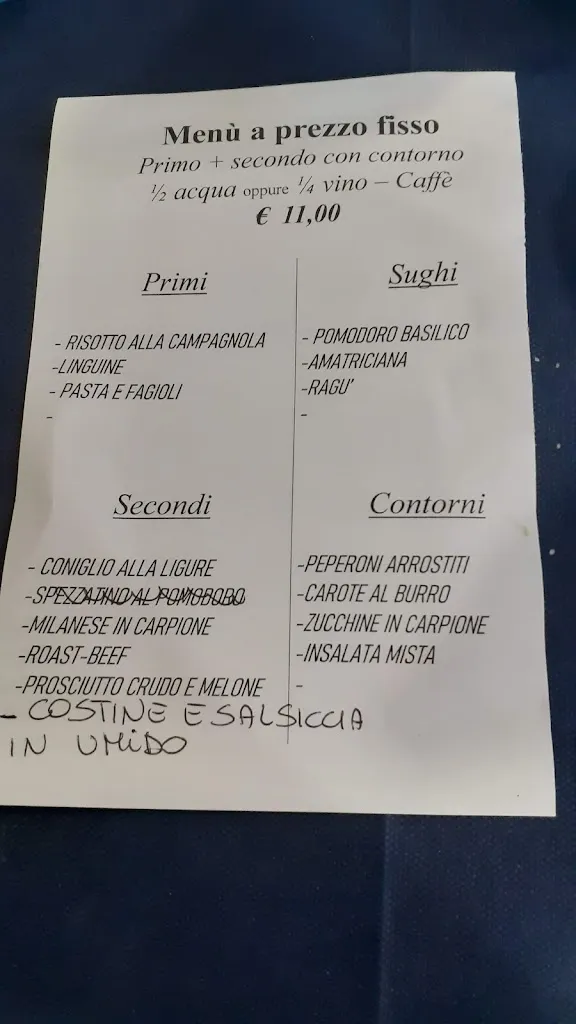 Menù a prezzo fisso
Primo + secondo con contorno
½ acqua oppure ¼ vino – Caffè
€ 11,00
Primi
- RISOTTO ALLA CAMPAGNOLA
-LINGUINE
- PASTA E FAGIOLI
-
Sughi
- POMODORO BASILICO
-AMATRICIANA
-RAGU'
-
Secondi
- CONIGLIO ALLA LIGURE
-SPEZZATINO AL POMODORO
-MILANESE IN CARPIONE
-ROAST-BEEF
-PROSCIUTTO CRUDO E MELONE
- COSTINE E SALSICCIA
IN UMIDO
Contorni
-PEPERONI ARROSTITI
-CAROTE AL BURRO
-ZUCCHINE IN CARPIONE
-INSALATA MISTA
-